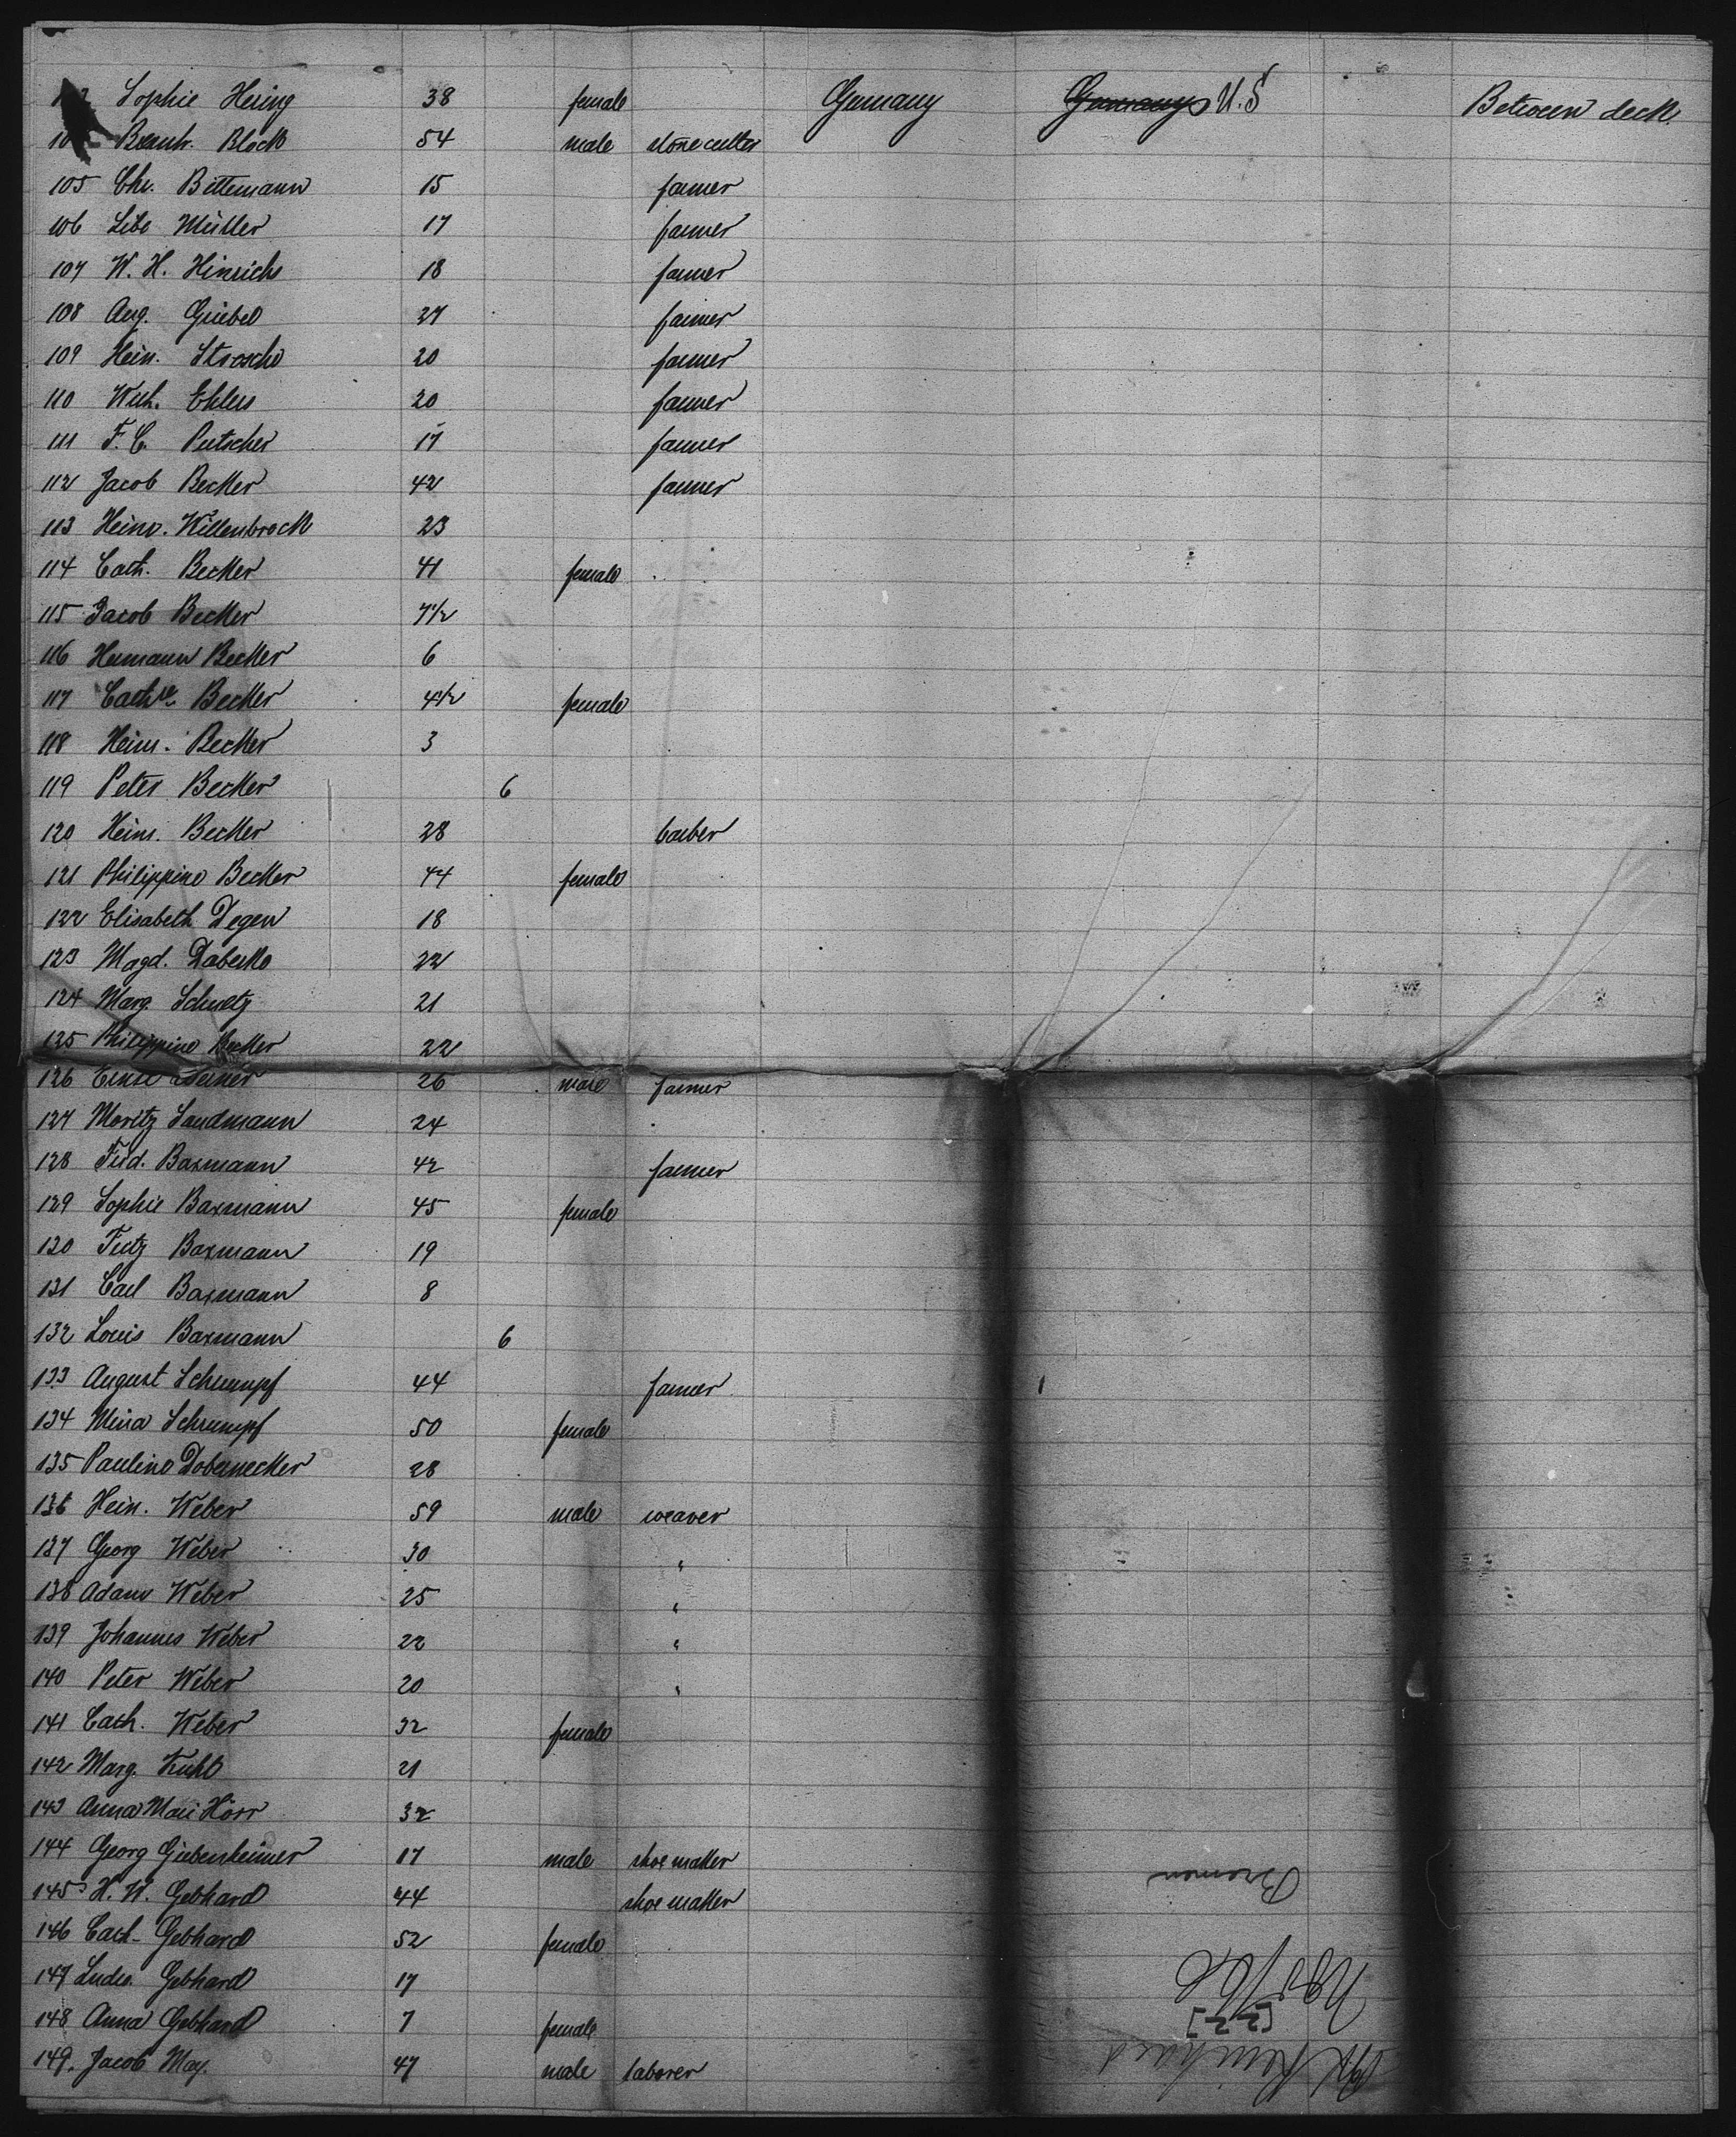 Sophie Hering 38 female Germany Germany U.S Between deck
Bernh. Block 54 male stonecutter
105 Chr. Bittemann 15 farmer
106 Libe Müller 17 farmer
107 W. H. Hinrichs 18 farmer
108 Aug. Griebel 27 farmer
109 Hein. Strosche 20 farmer
110 Wilh. Ehlers 20 farmer
111 F. C. Putscher 17 farmer
112 Jacob Becker 42 farmer
113 Heinr. Willenbrock 23
114 Cath. Becker 41 female
115 Jacob Becker 7 1/2
116 Hermann Becker 6
117 Cathe Becker 4 1/2 female
118 Heinr. Becker 3
119 Peter Becker 6
120 Heinr. Becker 28 barber
121 Philippine Becker 44 female
122 Elisabeth Degen 18
123 Magd. 22
124 Marg. Schmelz 21
125 Philippine Becker 22
126 Ernst 26 male farmer
127 Moritz Sandmann 24
128 Ferd. Baxmann 42 farmer
129 Sophie Baxmann 45 female
130 Fritz Baxmann 19
131 Carl Baxmann 8
132 Louis Baxmann 6
133 August Schrumpf 44 farmer
134 Mina Schrumpf 50 female
135 Pauline Dobernecker 28
136 Hein. Weber 59 male weaver
137 Georg Weber 30 "
138 Adam Weber 25 "
139 Johannes Weber 22 "
140 Peter Weber 20 "
141 Cath. Weber 32 female
142 Marg. Kuhl 21
143 Anna Mari Hörr 32
144 Georg Giebenheimer 17 male shoemaker
145 H. W. Gebhard 44 shoemaker
146 Cath. Gebhard 52 female
147 Ludw. Gebhard 17
148 Anna Gebhard 7 female
149. Jacob May. 47 male laborer
Bremen
[22]
Reinhard